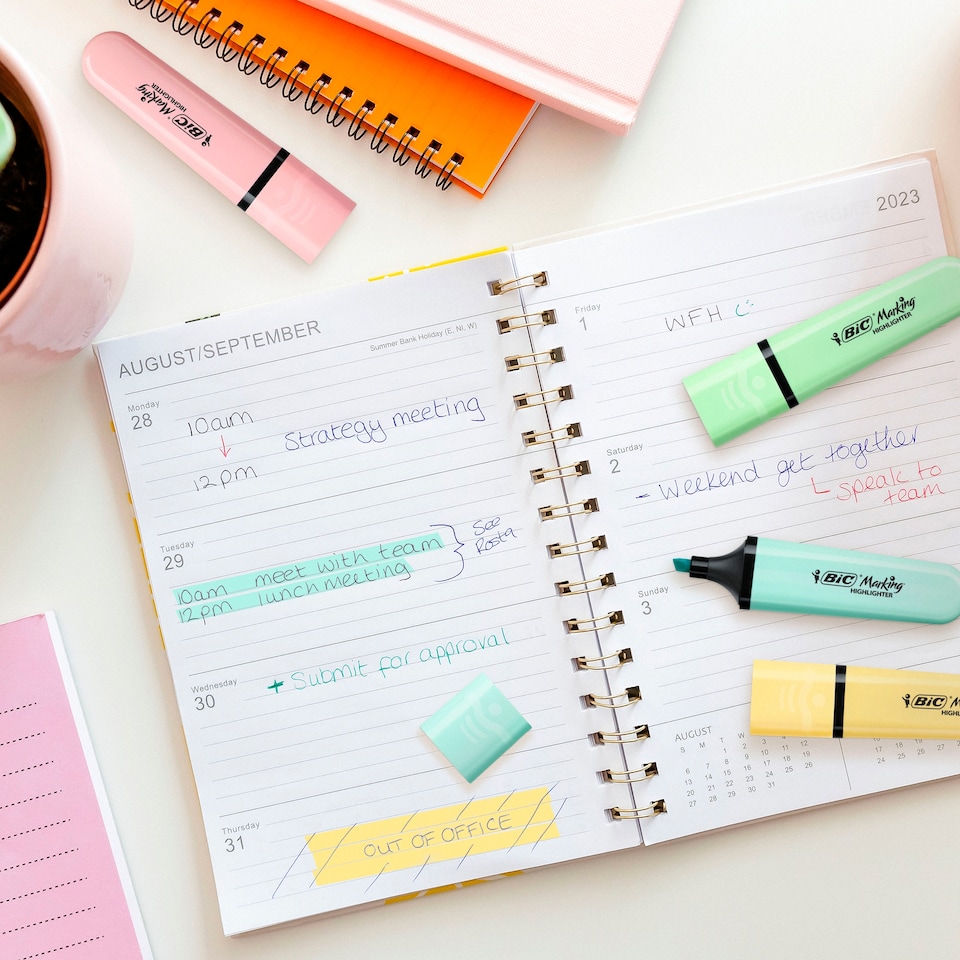 BiC Marking
HIGHLIGHTER
AUGUST/SEPTEMBER
Summer Bank Holiday (E, NI, W)
Monday
28
10am
12pm
Strategy meeting
Tuesday
29
10am meet with team
12pm lunch meeting
See
Rosta
Wednesday
30
+ Submit for approval
Thursday
31
OUT OF OFFICE
2023
Friday
1
WFH
BiC Marking
HIGHLIGHTER
Saturday
2
- Weekend get together
speak to
team
BiC Marking
HIGHLIGHTER
Sunday
3
BiC
AUGUST
S M T W
1 2 3 4 5
6 7 8 9 10 11 12
13 14 15 16 17 18 19
20 21 22 23 24 25 26
27 28 29 30 31